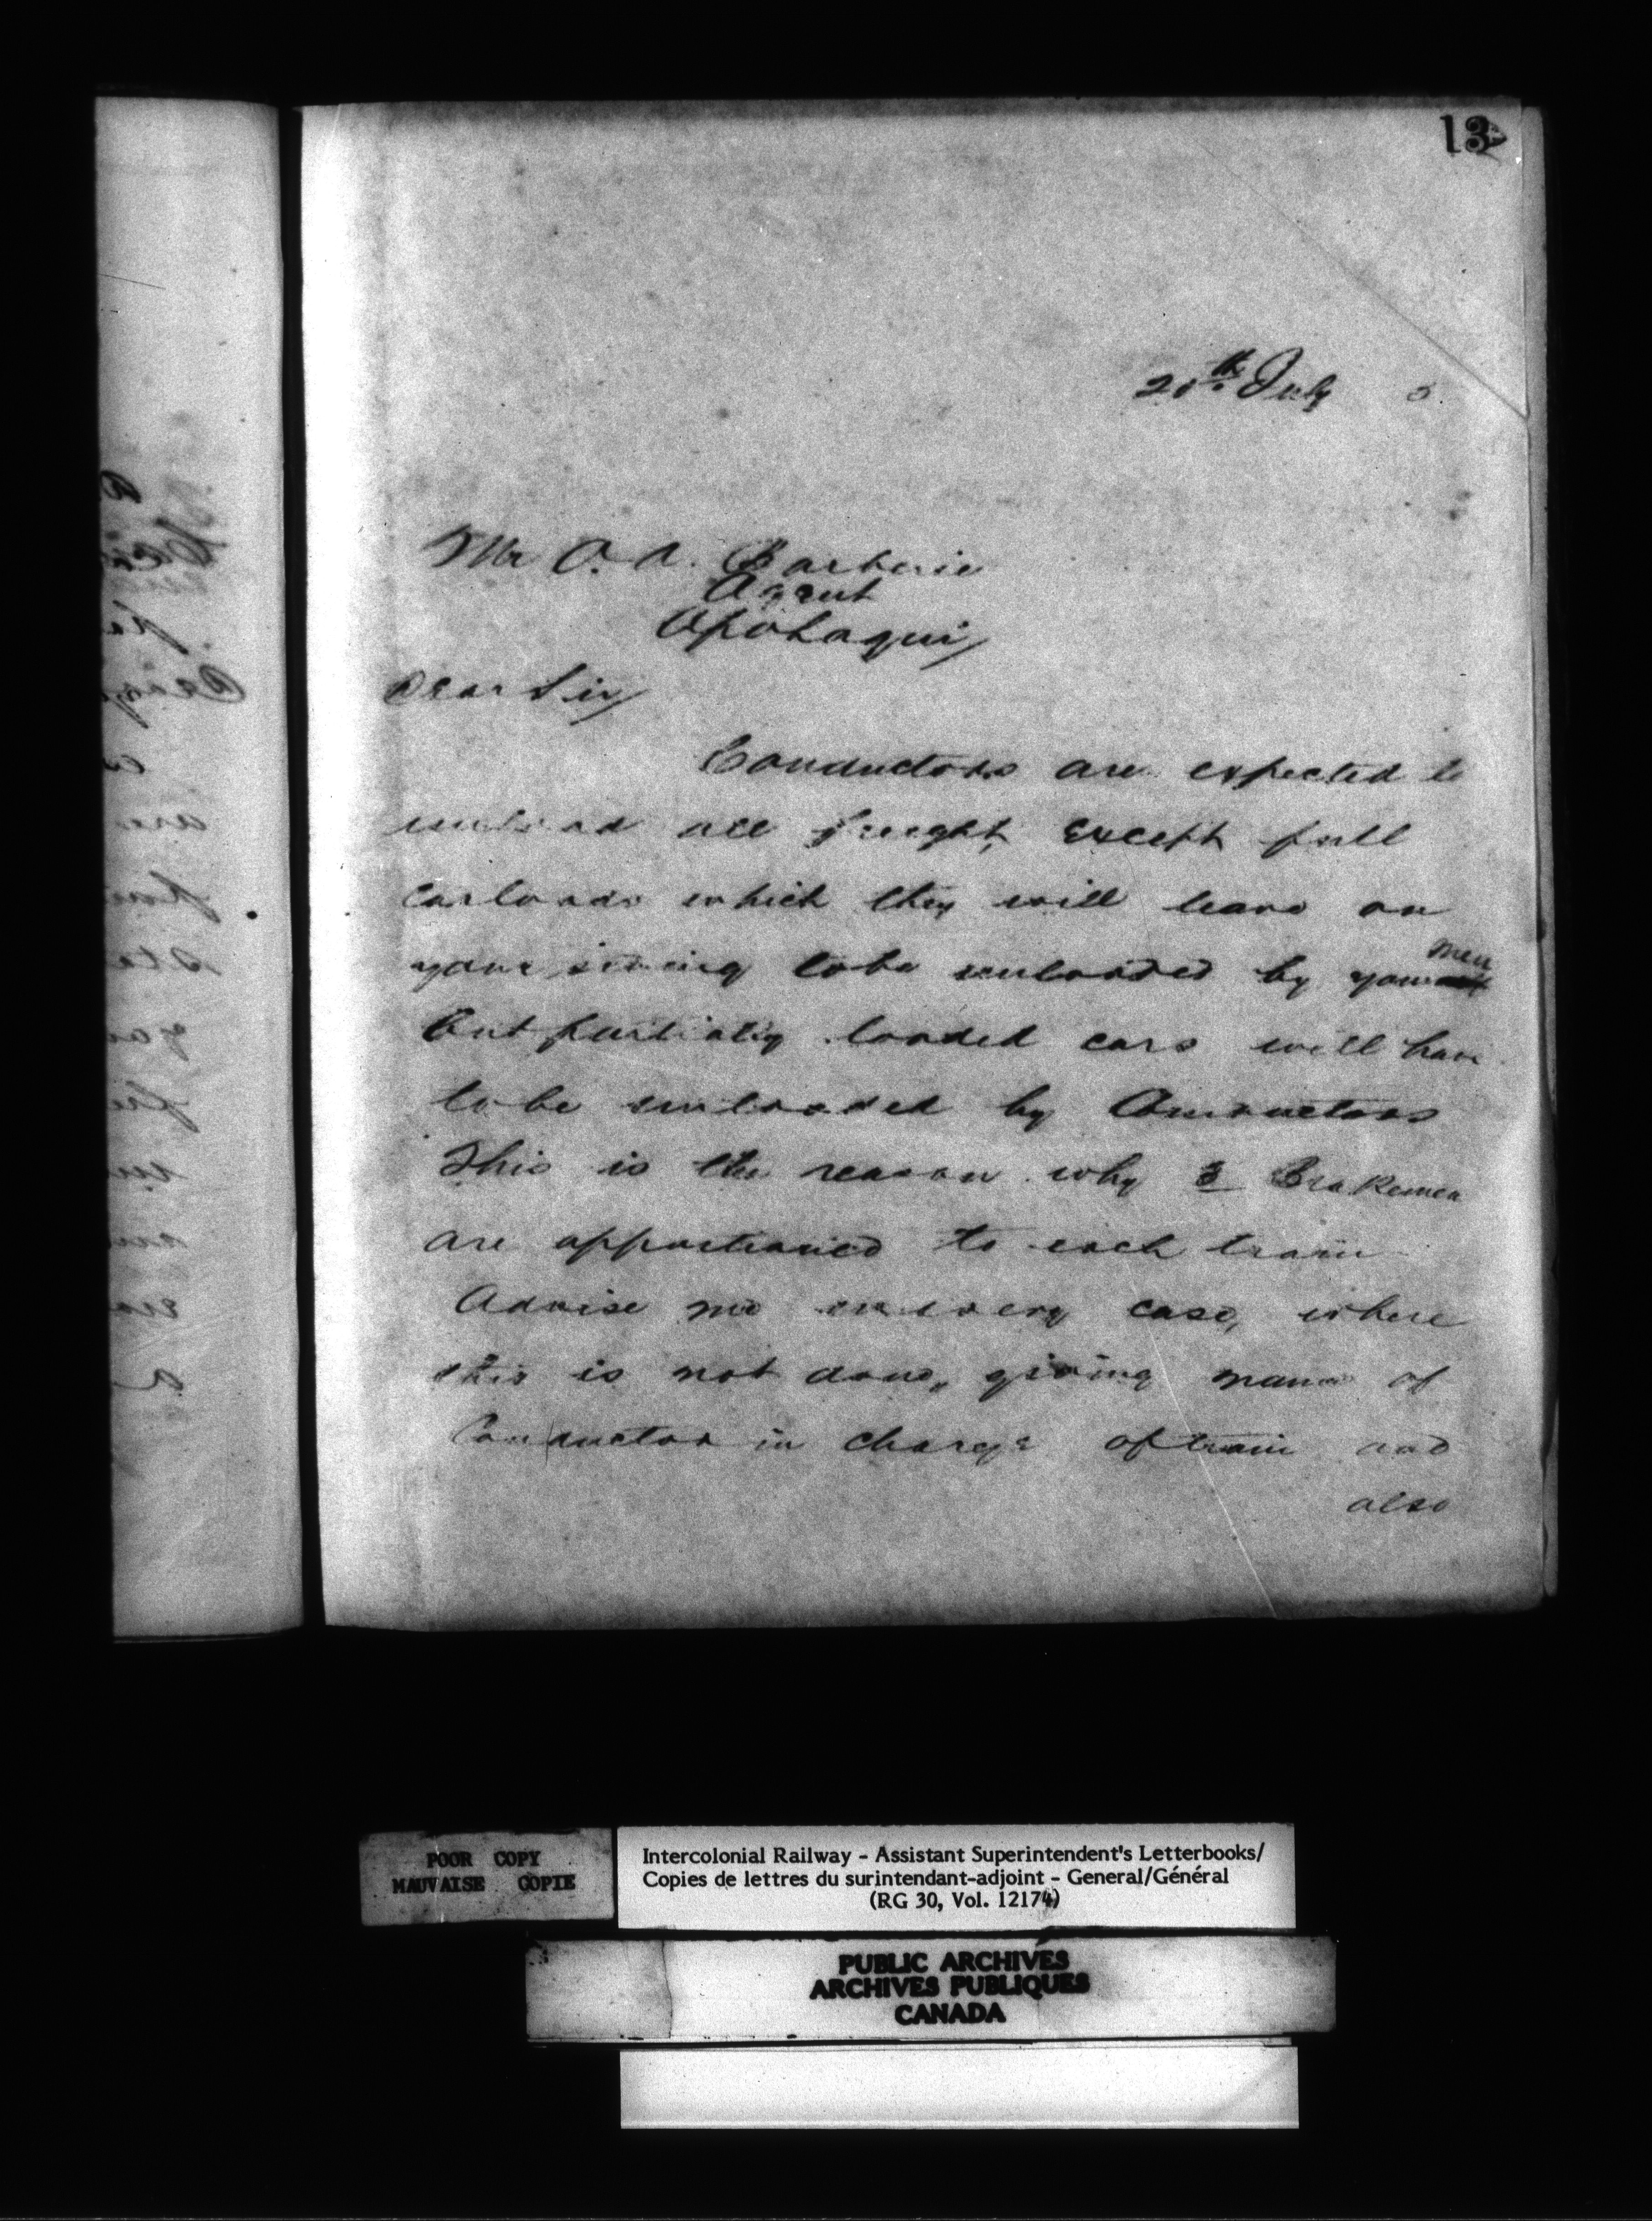 13
20th July 5
Mr O. A. Barberie
Agent
Apohaqui
Dear Sir
Conductors are expected to
unload all freight, except full
carloads which they will leave on
your siding to be unloaded by your men
But partially loaded cars will have
to be unloaded by Conductors
This is the reason why 3 Brakemen
are apportioned to each train
Advise me in every case, where
this is not done, giving name of
Conductor in charge of train and
also
POOR COPY
MAUVAISE COPIE
Intercolonial Railway - Assistant Superintendent's Letterbooks/
Copies de lettres du surintendant-adjoint - General/Général
(RG 30, Vol. 12174)
PUBLIC ARCHIVES
ARCHIVES PUBLIQUES
CANADA